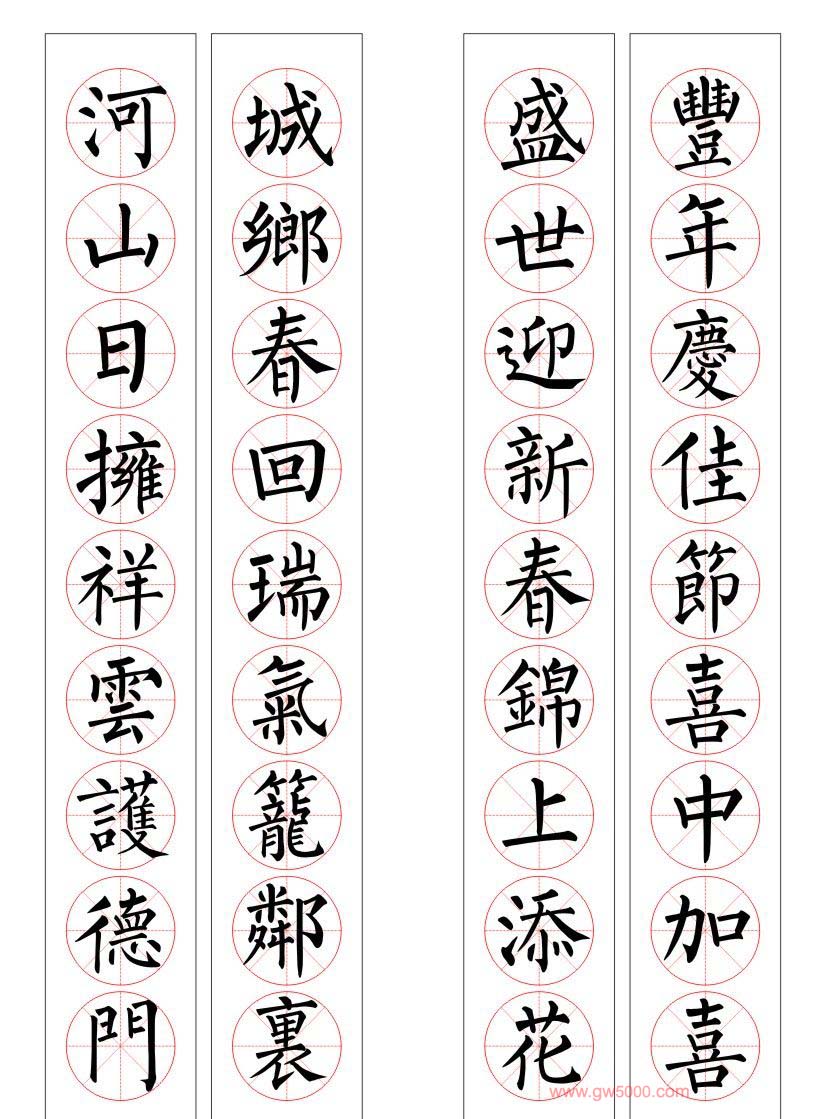 豐年慶佳節喜中加喜
盛世迎新春錦上添花
城鄉春回瑞氣籠鄰裏
河山日擁祥雲護德門
www.gw5000.com